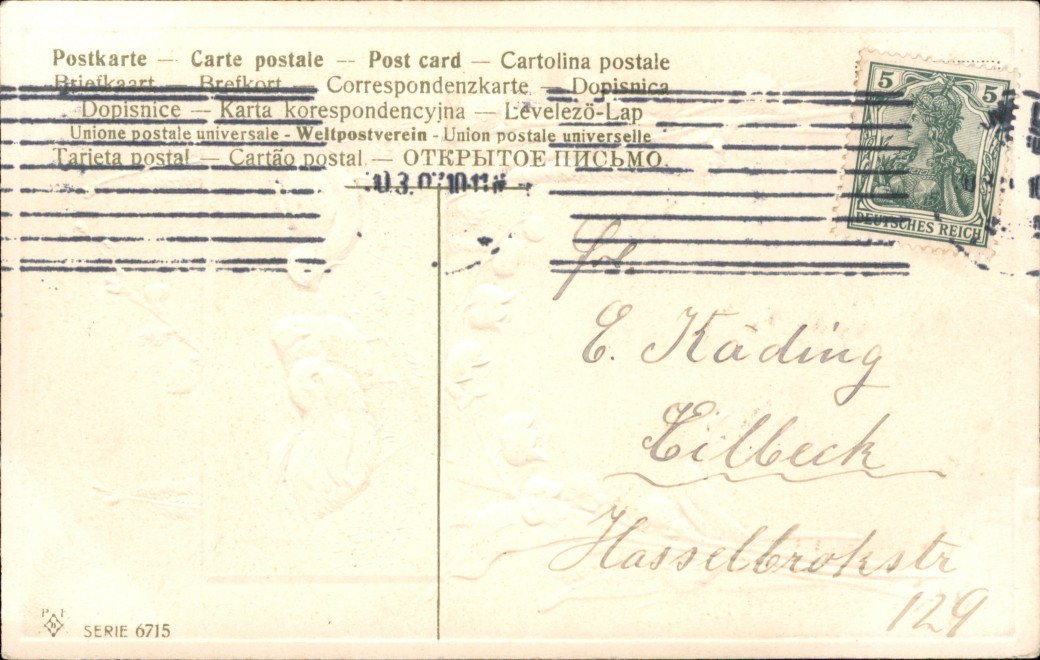 Postkarte — Carte postale — Post card — Cartolina postale
Briefkaart — Brefkort — Correspondenzkarte — Dopisnica
Dopisnice — Karta korespondencyjna — Levelező-Lap
Unione postale universale - Weltpostverein - Union postale universelle
Tarjeta postal — Cartão postal — ОТКРЫТОЕ ПИСЬМО.
5 5
DEUTSCHES REICH
E. Käding
Eilbeck
Hasselbrokstr
129
SERIE 6715